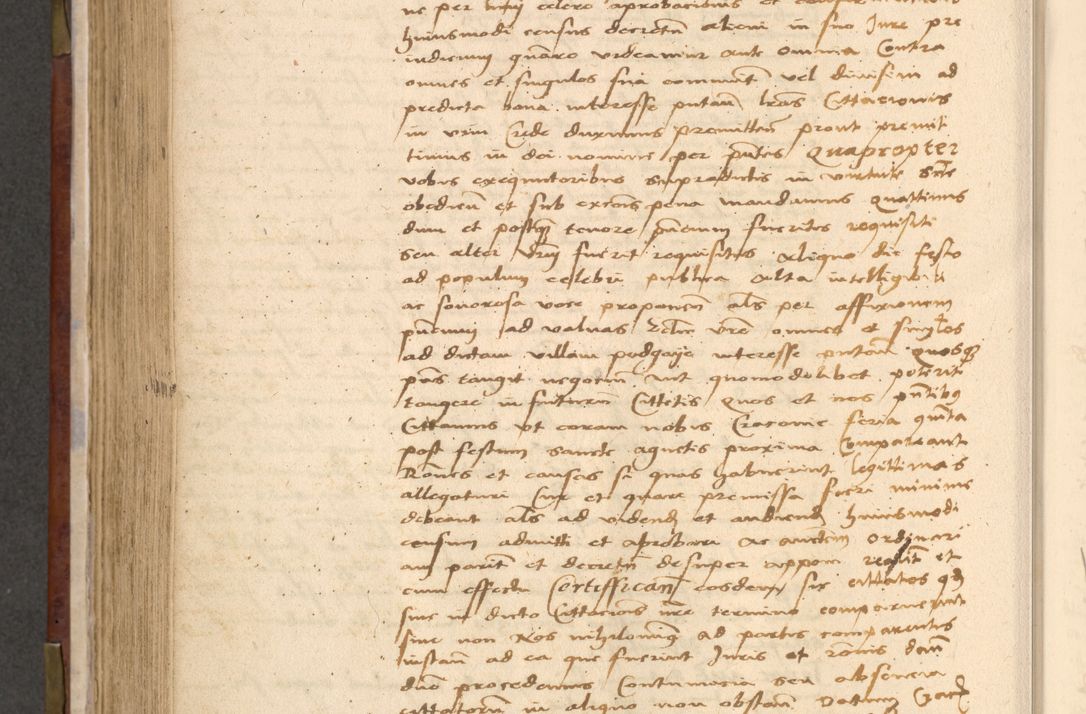 huiusmodi census decretũ alicui in suo Jure pre
iudicium quare videamur ante omnia Contra
omnes et singulos sua commuñt vel divisim ad
predicta bona interesse putañ lras Cittacionis
in vim Crede duximus premitteñ prout premit
timus in dei nomine per pñtes Quapropter
vobis exequutoribus supradictis in virtute Scte
obedieñ et sub excõis pena mandamus Quattinus
dum et postq̃ tenore pñcium fueritis requisiti
seu alter vrm̃ fuerit requisitus aliquo die festo
ad populum celebri publica alta intelligibili
ac sonorosa voce proponeñ als per affixionem
pñcium ad valvas Eccle vre omnes et singlos
ad dictam villam podgaye interesse putañ quosq̃
pñs tangit negociũ aut quomodolibet poterit
tangere in futurum Cittetis Quos et nos pñtibus
Cittamus ut coram nobis Cracovie feria quinta
post festum sancte agnetis proxima Compareant
Rones et causas si quas habuerint legittimas
allegaturi Cur et quare premissa fieri minime
debeant als ad videnḋ et audienḋ huiusmodi
censum admitti et aprobari ac auctem ordinari
am pariṫ et decretũ desuper appoñ
cum effectu Certifficañ eosdem sic cittatos qḋ
sive in dicto Cittacionis nre termino comparuerint
sive non Nos nihilominus ad partis comparentis
instañ ad ea que fuerint Juris et rõnis
procedemus Contumacia seu absencia
cittatorũ in aliquo non obstañ Datum Crac